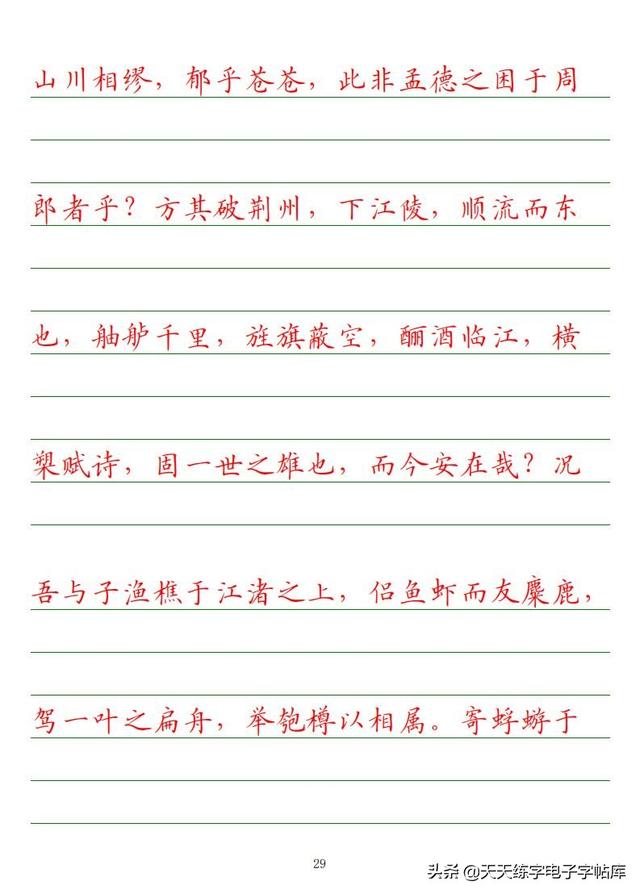 山川相缪，郁乎苍苍，此非孟德之困于周
郎者乎？方其破荆州，下江陵，顺流而东
也，舳舻千里，旌旗蔽空，酾酒临江，横
槊赋诗，固一世之雄也，而今安在哉？况
吾与子渔樵于江渚之上，侣鱼虾而友麋鹿，
驾一叶之扁舟，举匏樽以相属。寄蜉蝣于
29
头条 @天天练字电子字帖库